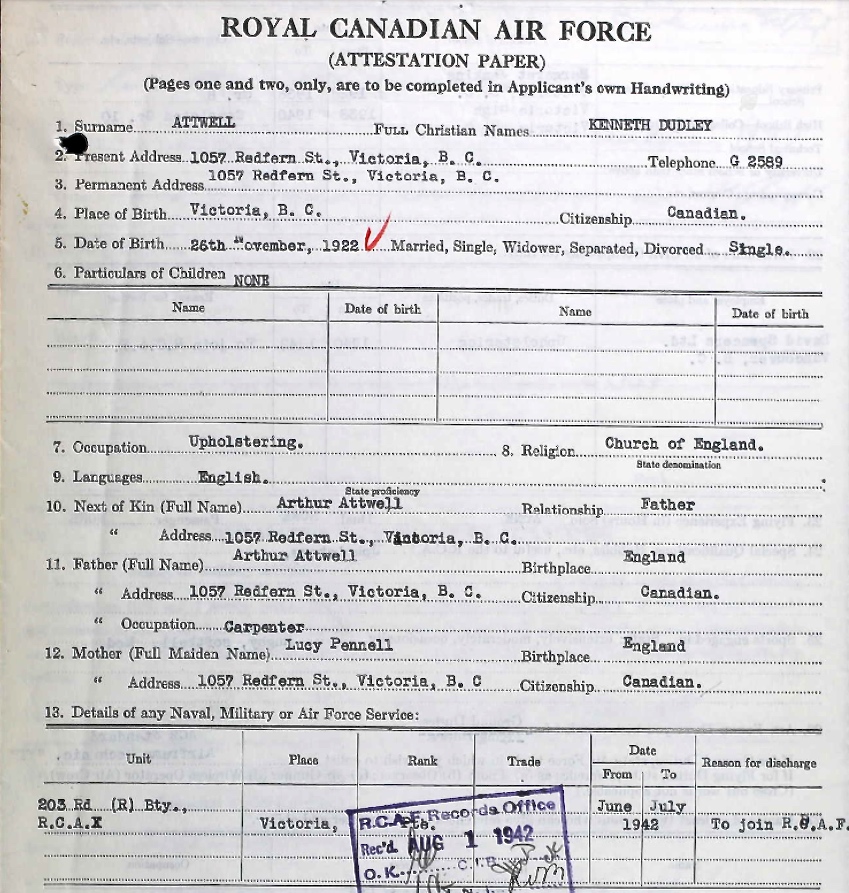 ROYAL CANADIAN AIR FORCE
(ATTESTATION PAPER)
(Pages one and two, only, are to be completed in Applicant's own Handwriting)
1. Surname ATTWELL FULL Christian Names KENNETH DUDLEY
2. Present Address 1057 Redfern St., Victoria, B. C. Telephone G 2589
3. Permanent Address 1057 Redfern St., Victoria, B. C.
4. Place of Birth Victoria, B. C. Citizenship Canadian.
5. Date of Birth 26th November, 1922 Married, Single, Widower, Separated, Divorced Single.
6. Particulars of Children NONE
Name Date of birth Name Date of birth
7. Occupation Upholstering. 8. Religion Church of England.
State denomination
9. Languages English.
State proficiency
10. Next of Kin (Full Name) Arthur Attwell Relationship Father
" Address 1057 Redfern St., Victoria, B.C.
11. Father (Full Name) Arthur Attwell Birthplace England
" Address 1057 Redfern St., Victoria, B. C. Citizenship Canadian.
" Occupation Carpenter
12. Mother (Full Maiden Name) Lucy Pennell Birthplace England
" Address 1057 Redfern St., Victoria, B. C Citizenship Canadian.
13. Details of any Naval, Military or Air Force Service:
Unit Place Rank Trade Date Reason for discharge
From To
203 Rd (R) Bty., June July
R.C.A.X Victoria, Pte. 1942 To join R.C.A.F.
R.C.A.F. Records Office
Rec'd AUG 1 1942
O.K.